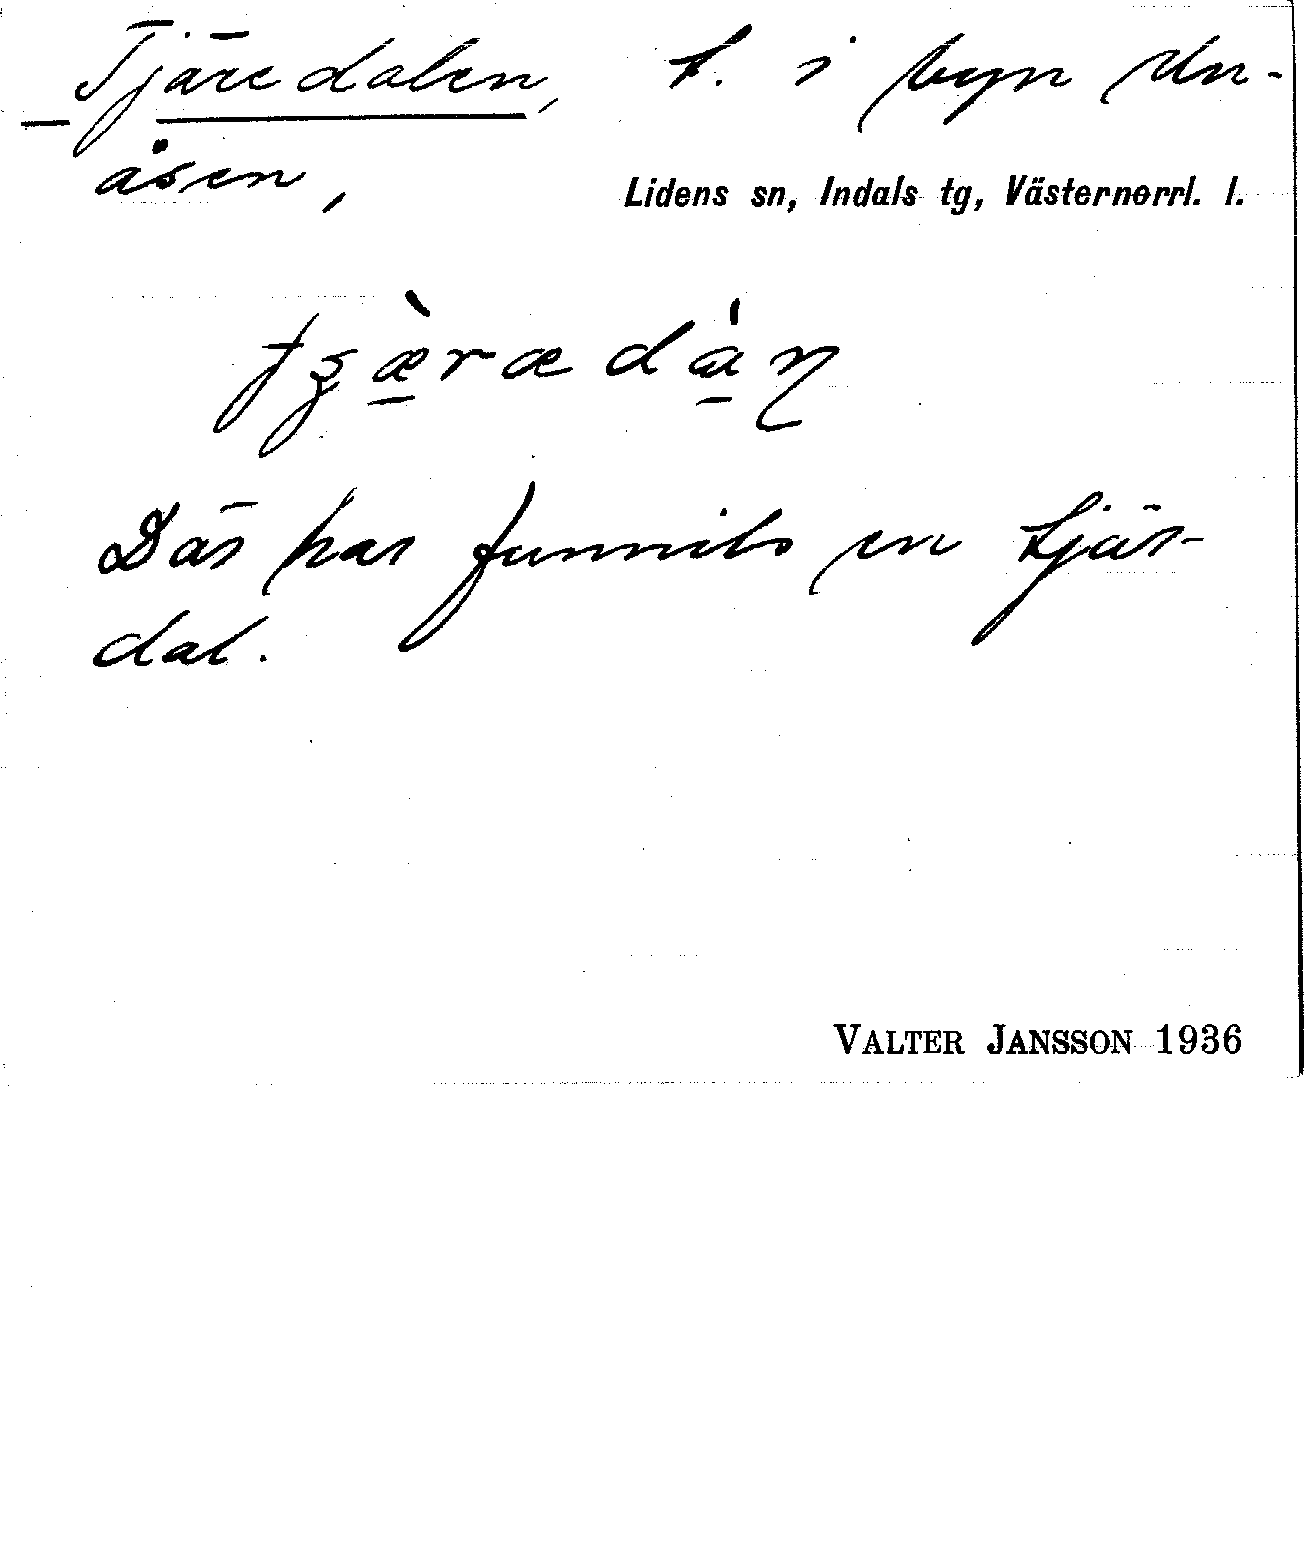 Tjäredalen, t. i byn Un-
åsen,
Lidens sn, Indals tg, Västernorrl. l.
Där har funnits en tjär-
dal.
VALTER JANSSON 1936